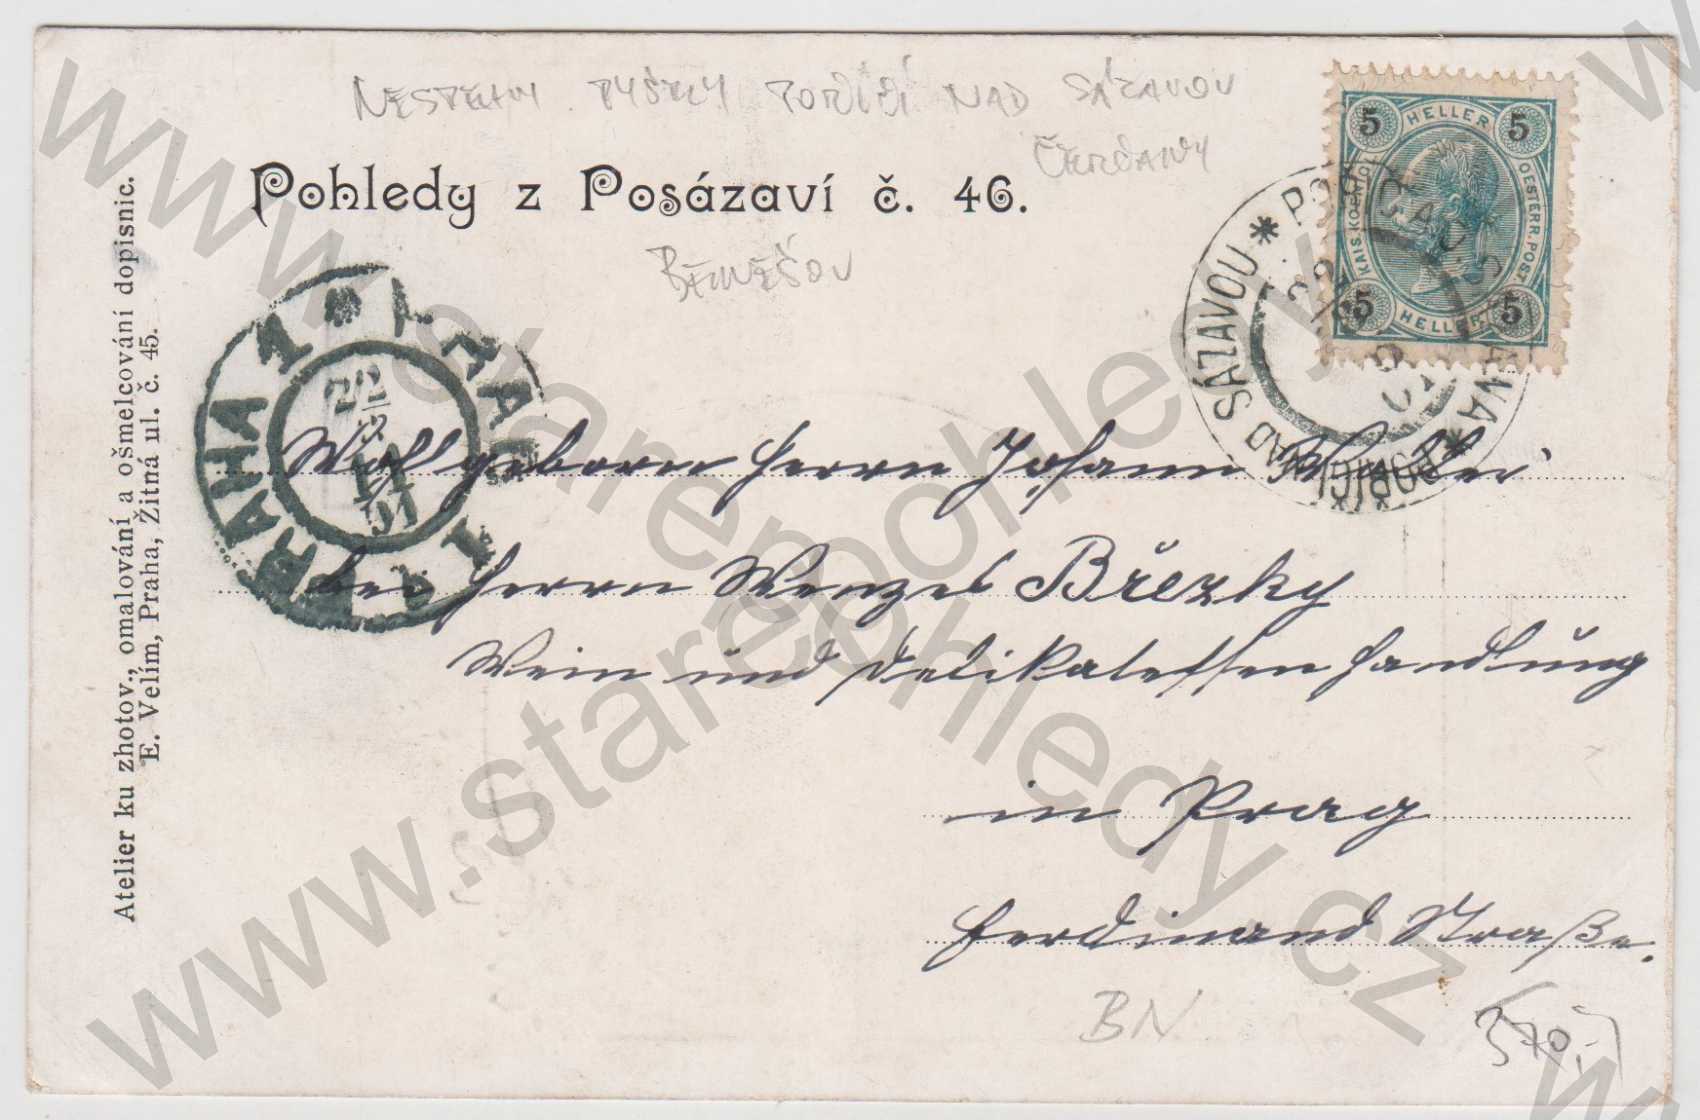 NAD SÁZAVOU
Pohledy z Posázaví č. 46.
BENEŠOV
Atelier ku zhotov., omalování a ošmelcování dopisnic.
E. Velím, Praha, Žitná ul. č. 45.
5 HELLER 5
KAIS. KOENIGL. OESTERR. POST
5 HELLER 5
POŘÍČÍ NAD SÁZAVOU
PRAHA 1
22
Wohlgeboren Herrn Johann
bei Herrn Wenzel Březky
Wein und Delikatessenhandlung
in Prag
Ferdinand Straße.
BN
370,-
www.starepohledy.cz
www.starepohledy.cz